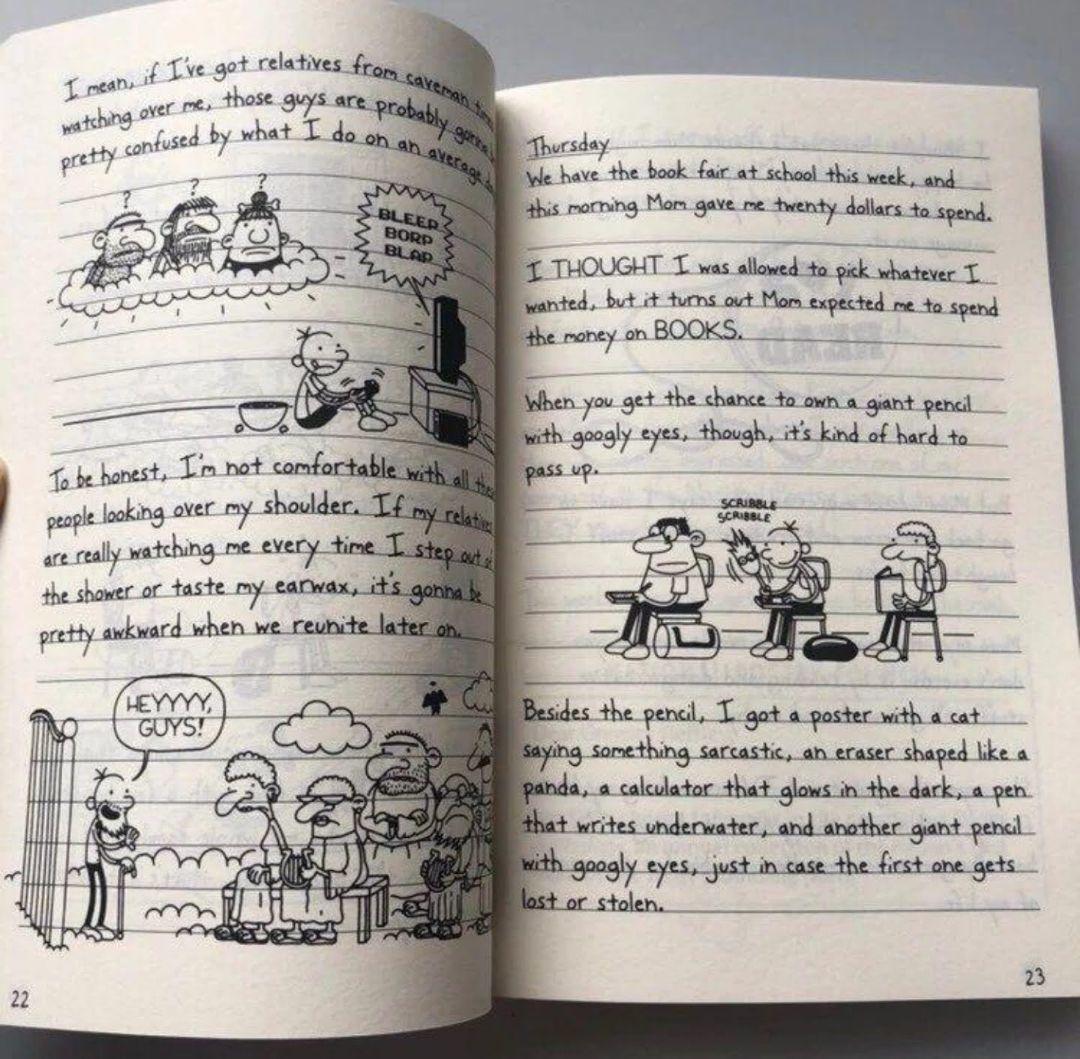 I mean, if I've got relatives from caveman
watching over me, those guys are probably
pretty confused by what I do on an average
? ? ?
BLEEP
BORP
BLAP
To be honest, I'm not comfortable with all
people looking over my shoulder. If my
are really watching me every time I step out
the shower or taste my earwax, it's gonna be
pretty awkward when we reunite later on.
HEYYYY,
GUYS!
22
Thursday
We have the book fair at school this week, and
this morning Mom gave me twenty dollars to spend.
I THOUGHT I was allowed to pick whatever I
wanted, but it turns out Mom expected me to spend
the money on BOOKS.
When you get the chance to own a giant pencil
with googly eyes, though, it's kind of hard to
pass up.
SCRIBBLE
SCRIBBLE
Besides the pencil, I got a poster with a cat
saying something sarcastic, an eraser shaped like a
panda, a calculator that glows in the dark, a pen
that writes underwater, and another giant pencil
with googly eyes, just in case the first one gets
lost or stolen.
23